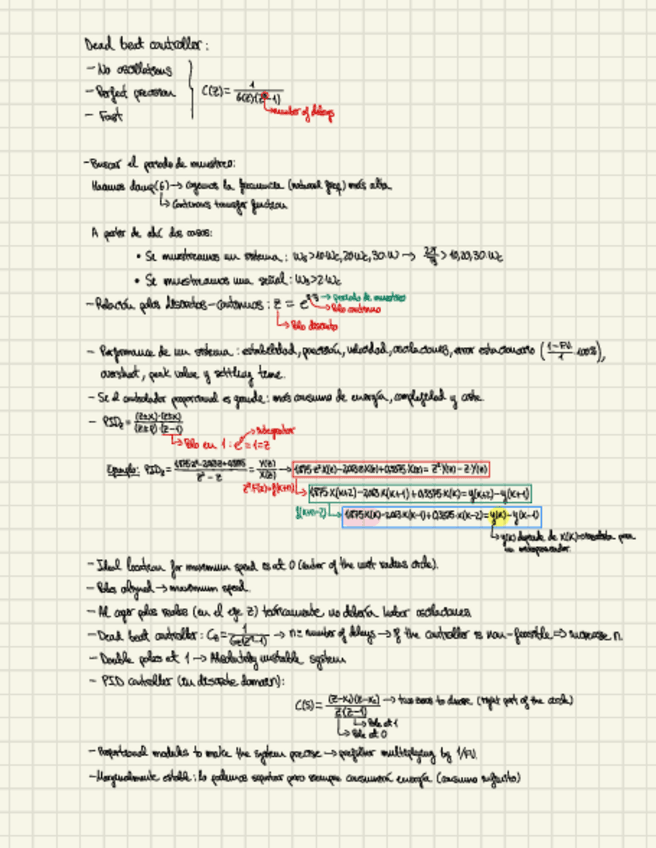 Dead beat controller:
- No oscillations
- Perfect precision
- Fast
C(z) = 1 / G(z)(z^n-1)
number of delays
- Buscar el periodo de muestreo:
Hacemos damp(G) → cogemos la frecuencia (natural freq) más alta
↳ Continuous transfer function
A partir de ahí dos casos:
• Se muestreamos un sistema: ωs > 10ωc, 20ωc, 30ω → 2π/ > 10, 20, 30 ωc
• Se muestreamos una señal: ωs > 2ωc
- Relación polos discretos-continuos: z = e
→ periodo de muestreo
Polo continuo
↳ Polo discreto
- Performance de un sistema: estabilidad, precisión, velocidad, oscilaciones, error estacionario (1-FV/1 · 100%),
overshoot, peak value y settling time.
- Si el controlador proporcional es grande: más consumo de energía, complejidad y coste.
- PID_z = (z±x)·(z±x) / (z±p)(z-1)
→ integrator
↳ Polo en 1: = 1 = z
Ejemplo: PID_z = / z²-z = Y(z)/X(z) →
y(k) depende de
un
- Ideal location for maximum speed is at 0 (center of the unit radius circle).
- Poles aligned → maximum speed.
- Al coger polos reales (en el eje z) teóricamente no debería haber oscilaciones.
- Dead beat controller: = 1 / (z^n-1) → n = number of delays → if the controller is non-feasible ⇒ increase n
- Double poles at 1 → Absolutely unstable system
- PID controller (in discrete domain):
C(s) = (z-x₁)(z-x₂) / z(z-1) → two zeros to choose (right part of the circle)
↳ Pole at 1
↳ Pole at 0
- Proportional modules to make the system precise → prefilter multiplying by 1/FV.
- Marginalmente estable: lo podemos soportar pero siempre consumirá energía (consumo infinito)